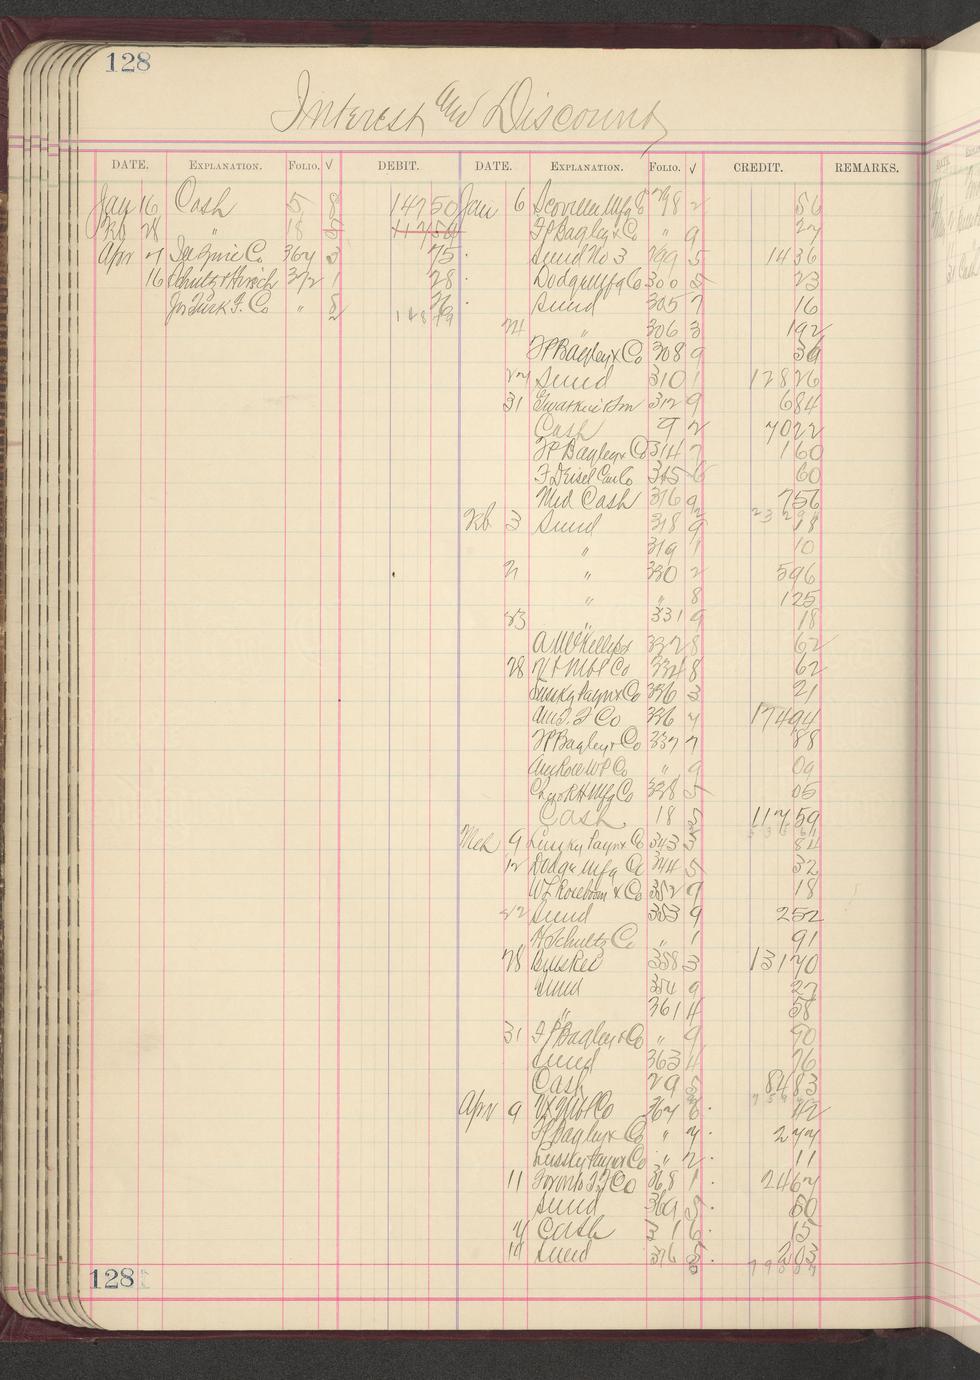 128
Interest and Discount
DATE. EXPLANATION. FOLIO. √ DEBIT. DATE. EXPLANATION. FOLIO. √ CREDIT. REMARKS.
Jan 16 Cash 5 8 147 50 Jan 6 Scoville Mfg 298 2 56
Feb 28 " 18 5 117 59 F P Bagley & Co " 9 27
Apr 7 Co 367 3 75 Sund No 3 299 5 14 36
16 Schultz & Hirsch 372 1 28 Dodge Mfg Co 300 5 23
Jos Turk F. Co " 8 26 Sund 305 7 16
148 79 24 " 306 3 1 92
F P Bagley & Co 308 9 36
27 Sund 310 1 128 26
31 312 9 6 84
Cash 9 2 70 22
F P Bagley & Co 314 7 1 60
F Deisel Can Co 315 6 60
Med Cash 316 9 7 56
Feb 3 Sund 318 9 18
" 319 1 10
21 " 330 2 5 96
" " 8 1 25
23 " 331 9 18
A W Phillips 332 8 62
28 334 8 62
Lussky Payn & Co 336 3 21
Am T F Co 336 4 174 94
F P Bagley & Co 337 7 88
Amy Ross W P Co " 9 09
Chgo R H Mfg Co 338 5 05
Cash 18 5 117 59
Mch 9 Lussky Payn & Co 343 3 84
12 Dodge Mfg Co 344 5 32
W L Roseboom & Co 352 9 18
22 Sund 353 9 2 52
H Schultz Co " 1 91
28 358 3 131 70
Sund 354 9 27
" 361 4 58
31 F P Bagley & Co " 9 90
Sund 363 4 76
Cash 29 5 84 83
Apr 9 367 6 42
F P Bagley & Co " 4 2 77
Lussky Payn & Co " 2 11
11 Toronto T F Co 368 1 24 67
Sund 369 5 50
Cash 31 6 15
19 Sund 376 5 2 03
128